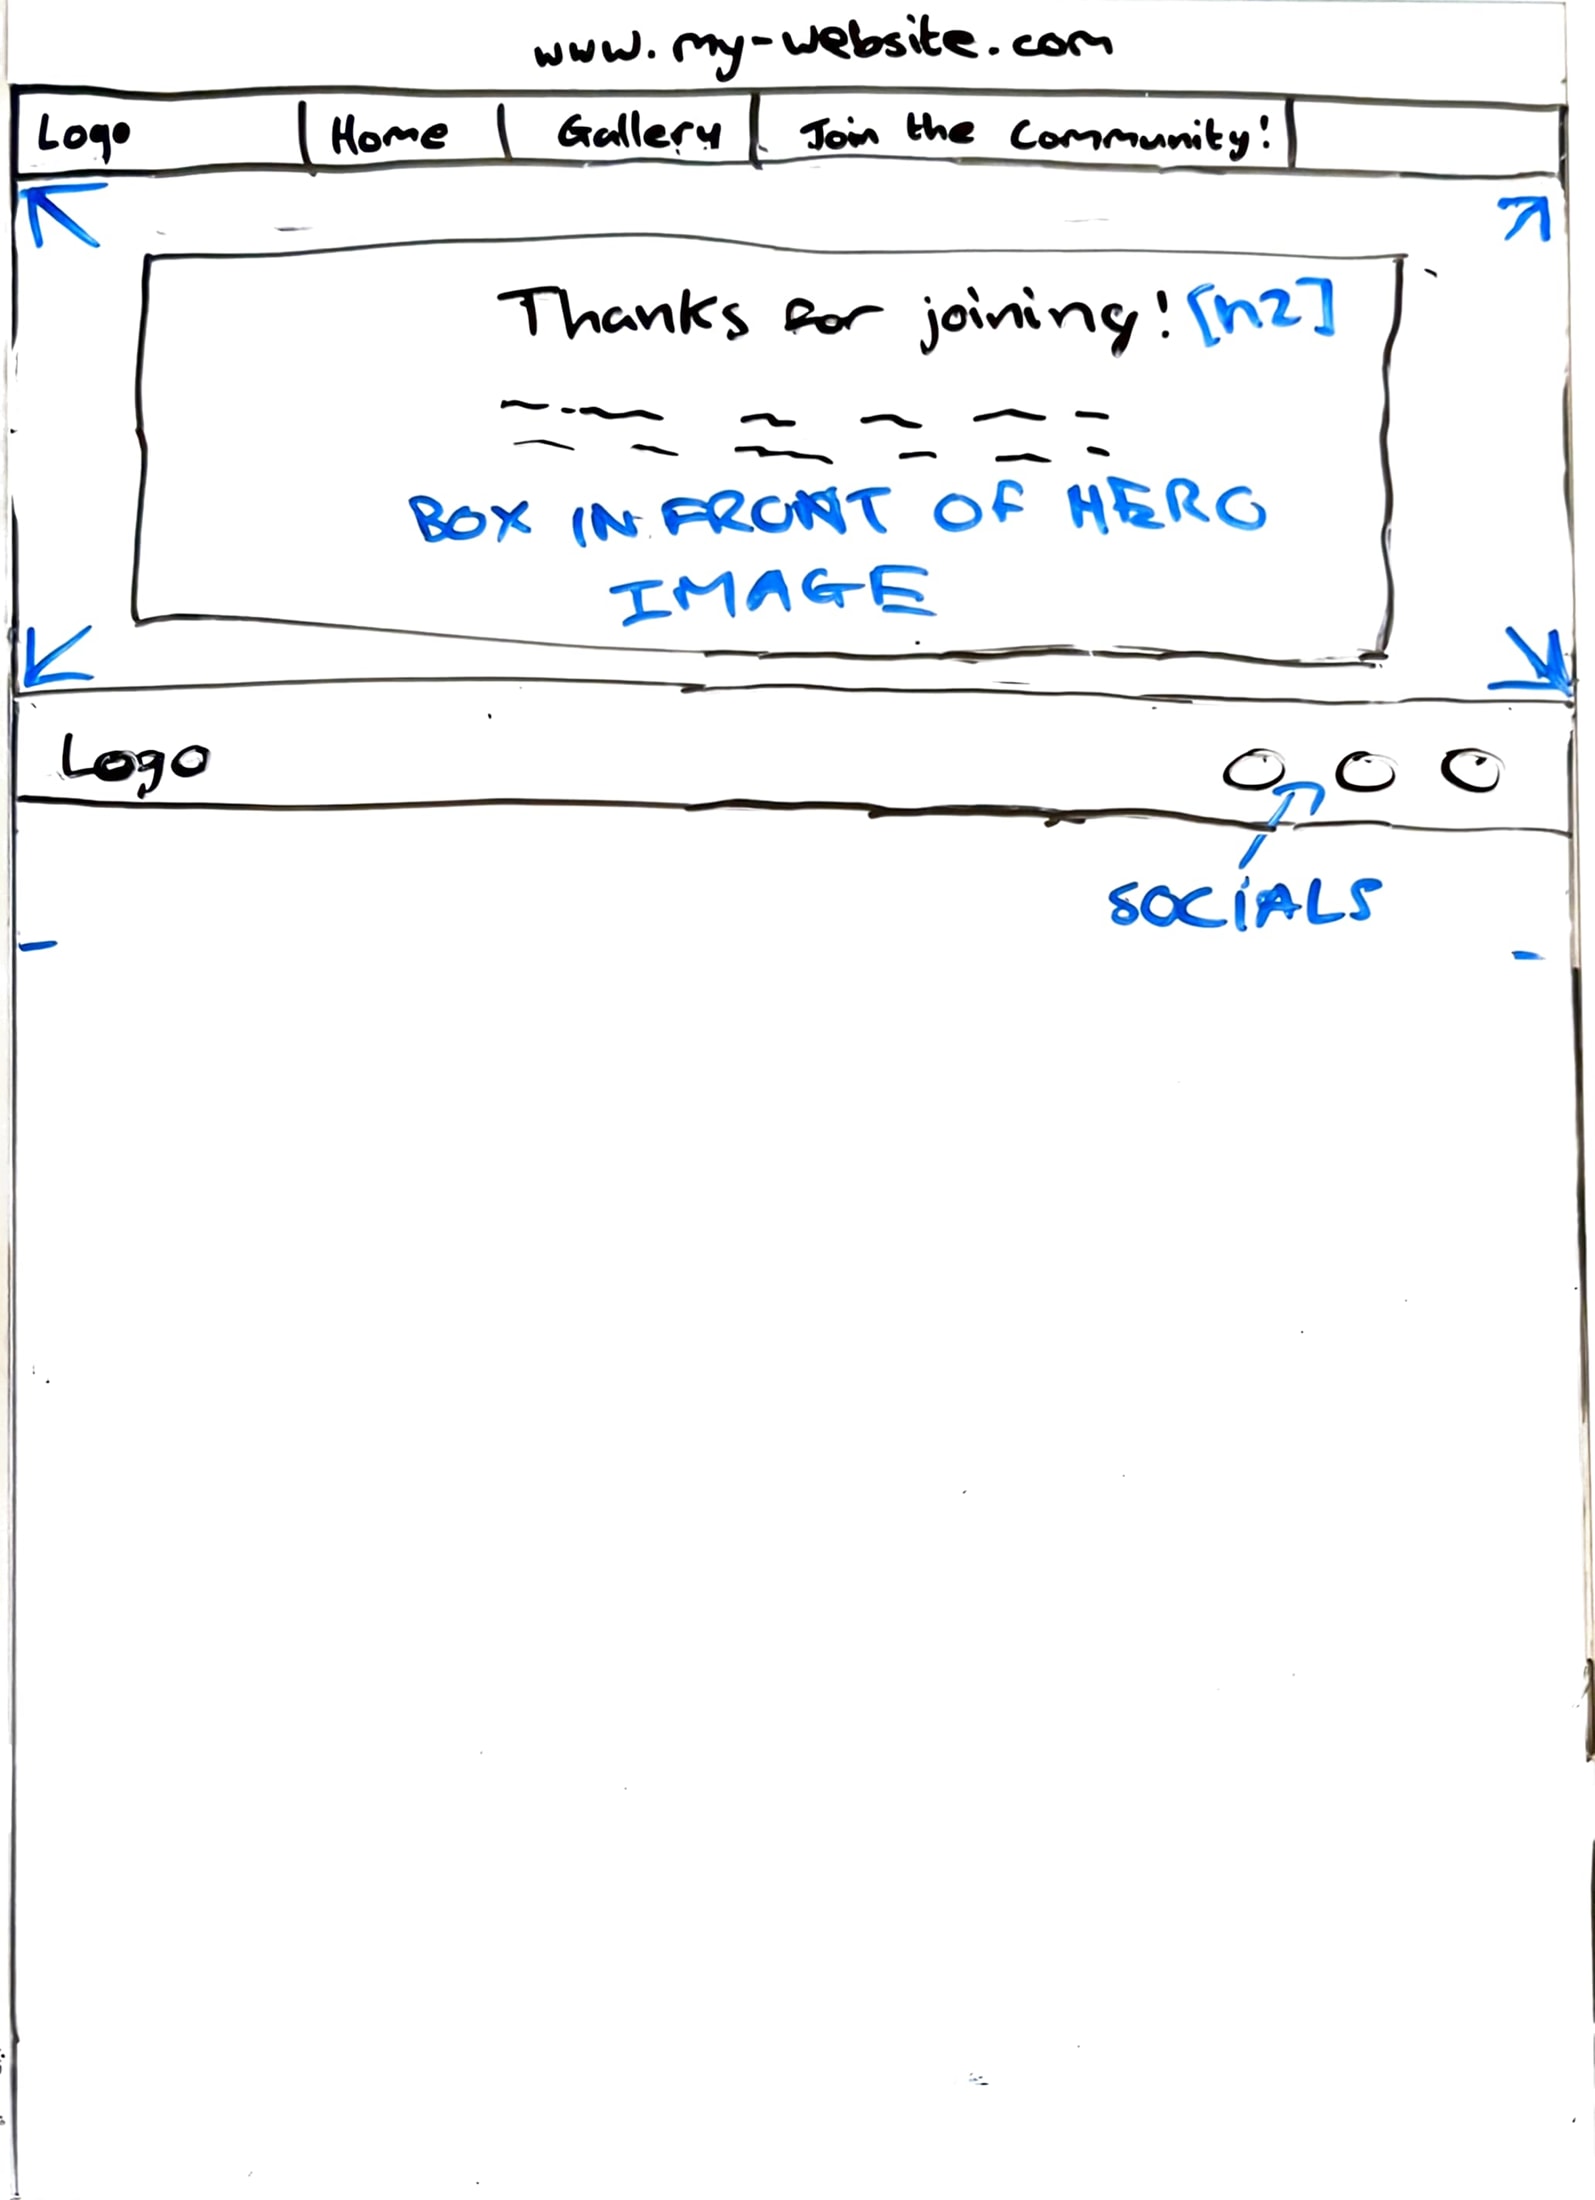 www.my-website.com
Logo Home Gallery Join the Community!
Thanks for joining! [h2]
BOX IN FRONT OF HERO
IMAGE
Logo
SOCIALS